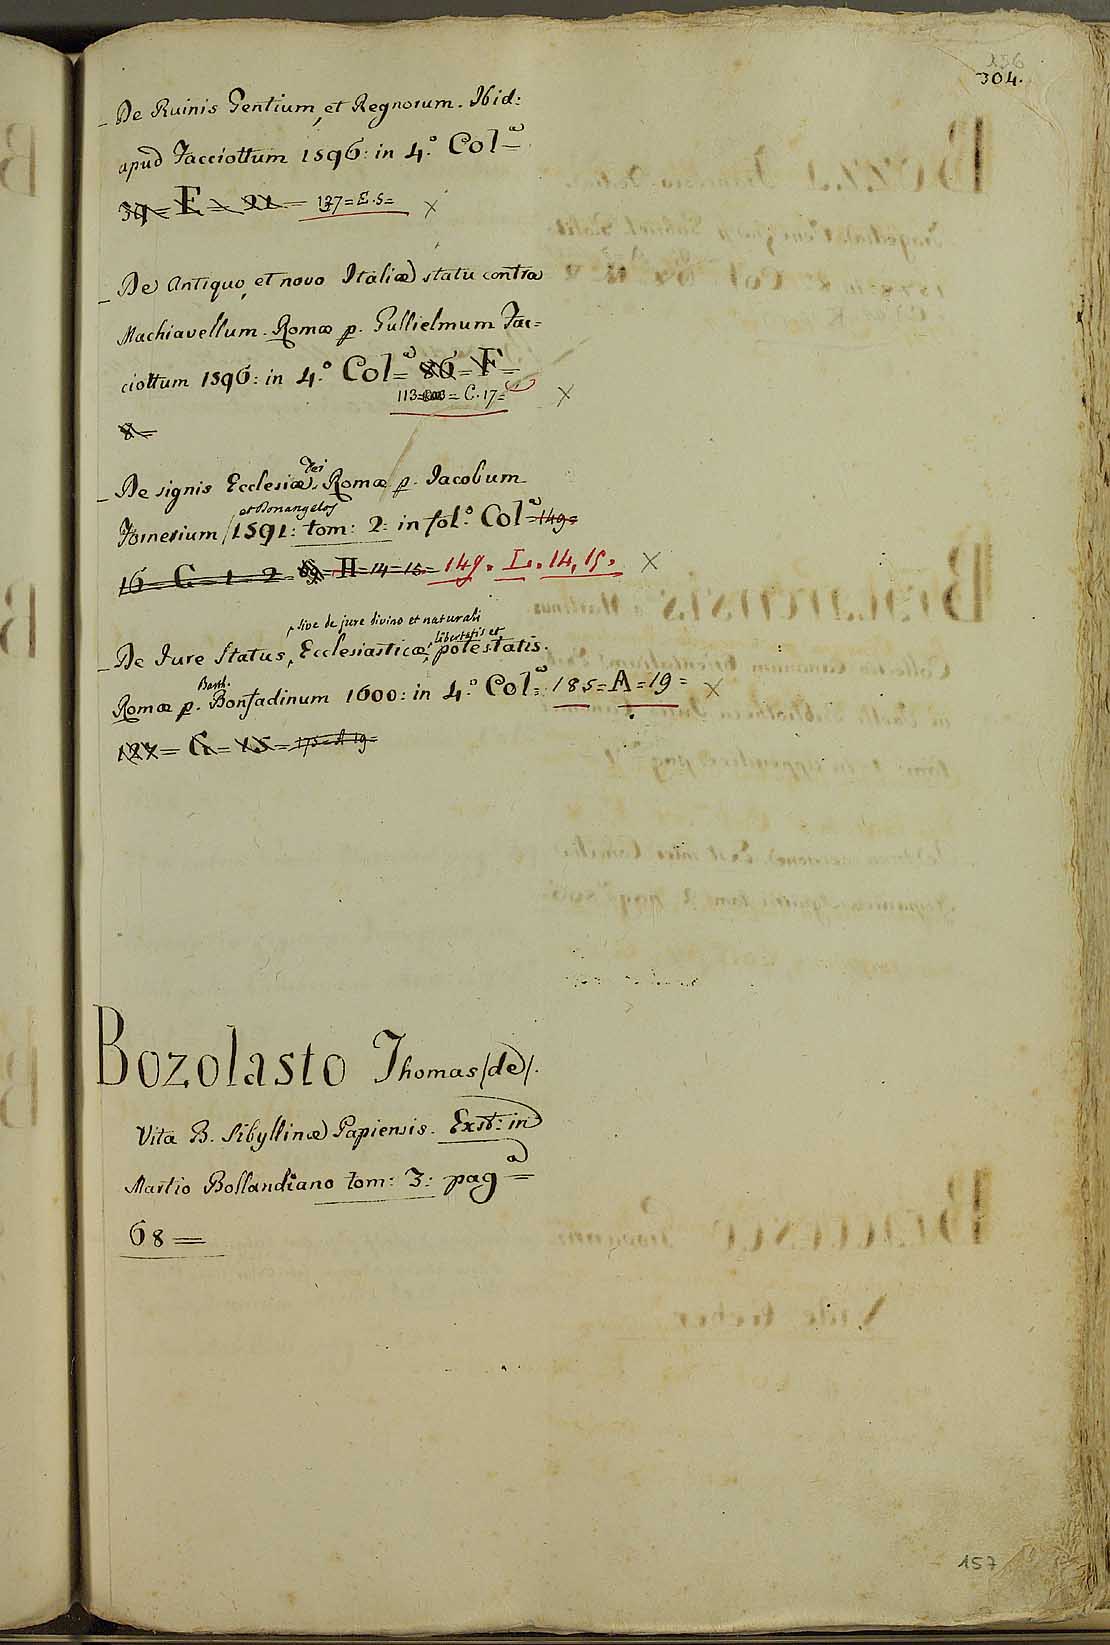 156
304.
_ De Ruinis Gentium, et Regnorum. Ibid:
apud Facciottum 1596: in 4.° Col.ª =
39 = F = 21 = 137 = E. 5 = x
_ De Antiquo, et novo Italiæ statu contra
Machiavellum. Romæ p. Gullielmum Fac=
ciottum 1596: in 4.° Colª = 86 = F =
113 = C. 17 = x
8 =
_ De signis Ecclesiæ Dei. Romæ p. Jacobum
Tornerium / et Donangelos 1591: tom: 2: in fol.° Colª = 149 =
16 = C = 1 = 2 69 = H = 14 = 15 = 149. L. 14, 15. x
, sive de jure divino et naturali
libertatis et
_ De Jure Status, Ecclesiasticæ, potestatis.
Barth.
Romæ p. Bonfadinum 1600: in 4.° Colª = 185 = A = 19 = x
127 = G = 15 = 175 = A 19 =
Bozolasto Thomas /de/.
Vita B. Sibyllinæ Papiensis. Exst: in
Martio Bollandiano tom: 3: pagª =
68 =
157